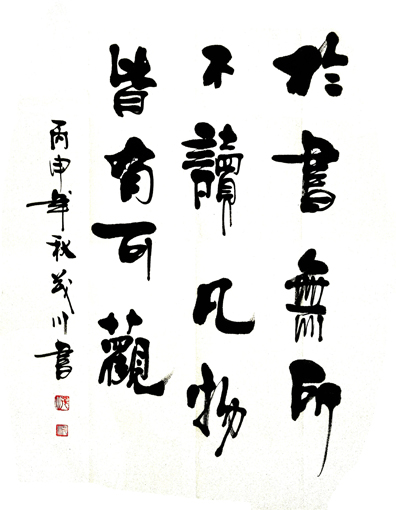 於書無所
不讀凡物
皆有可觀
丙申年秋茂川書